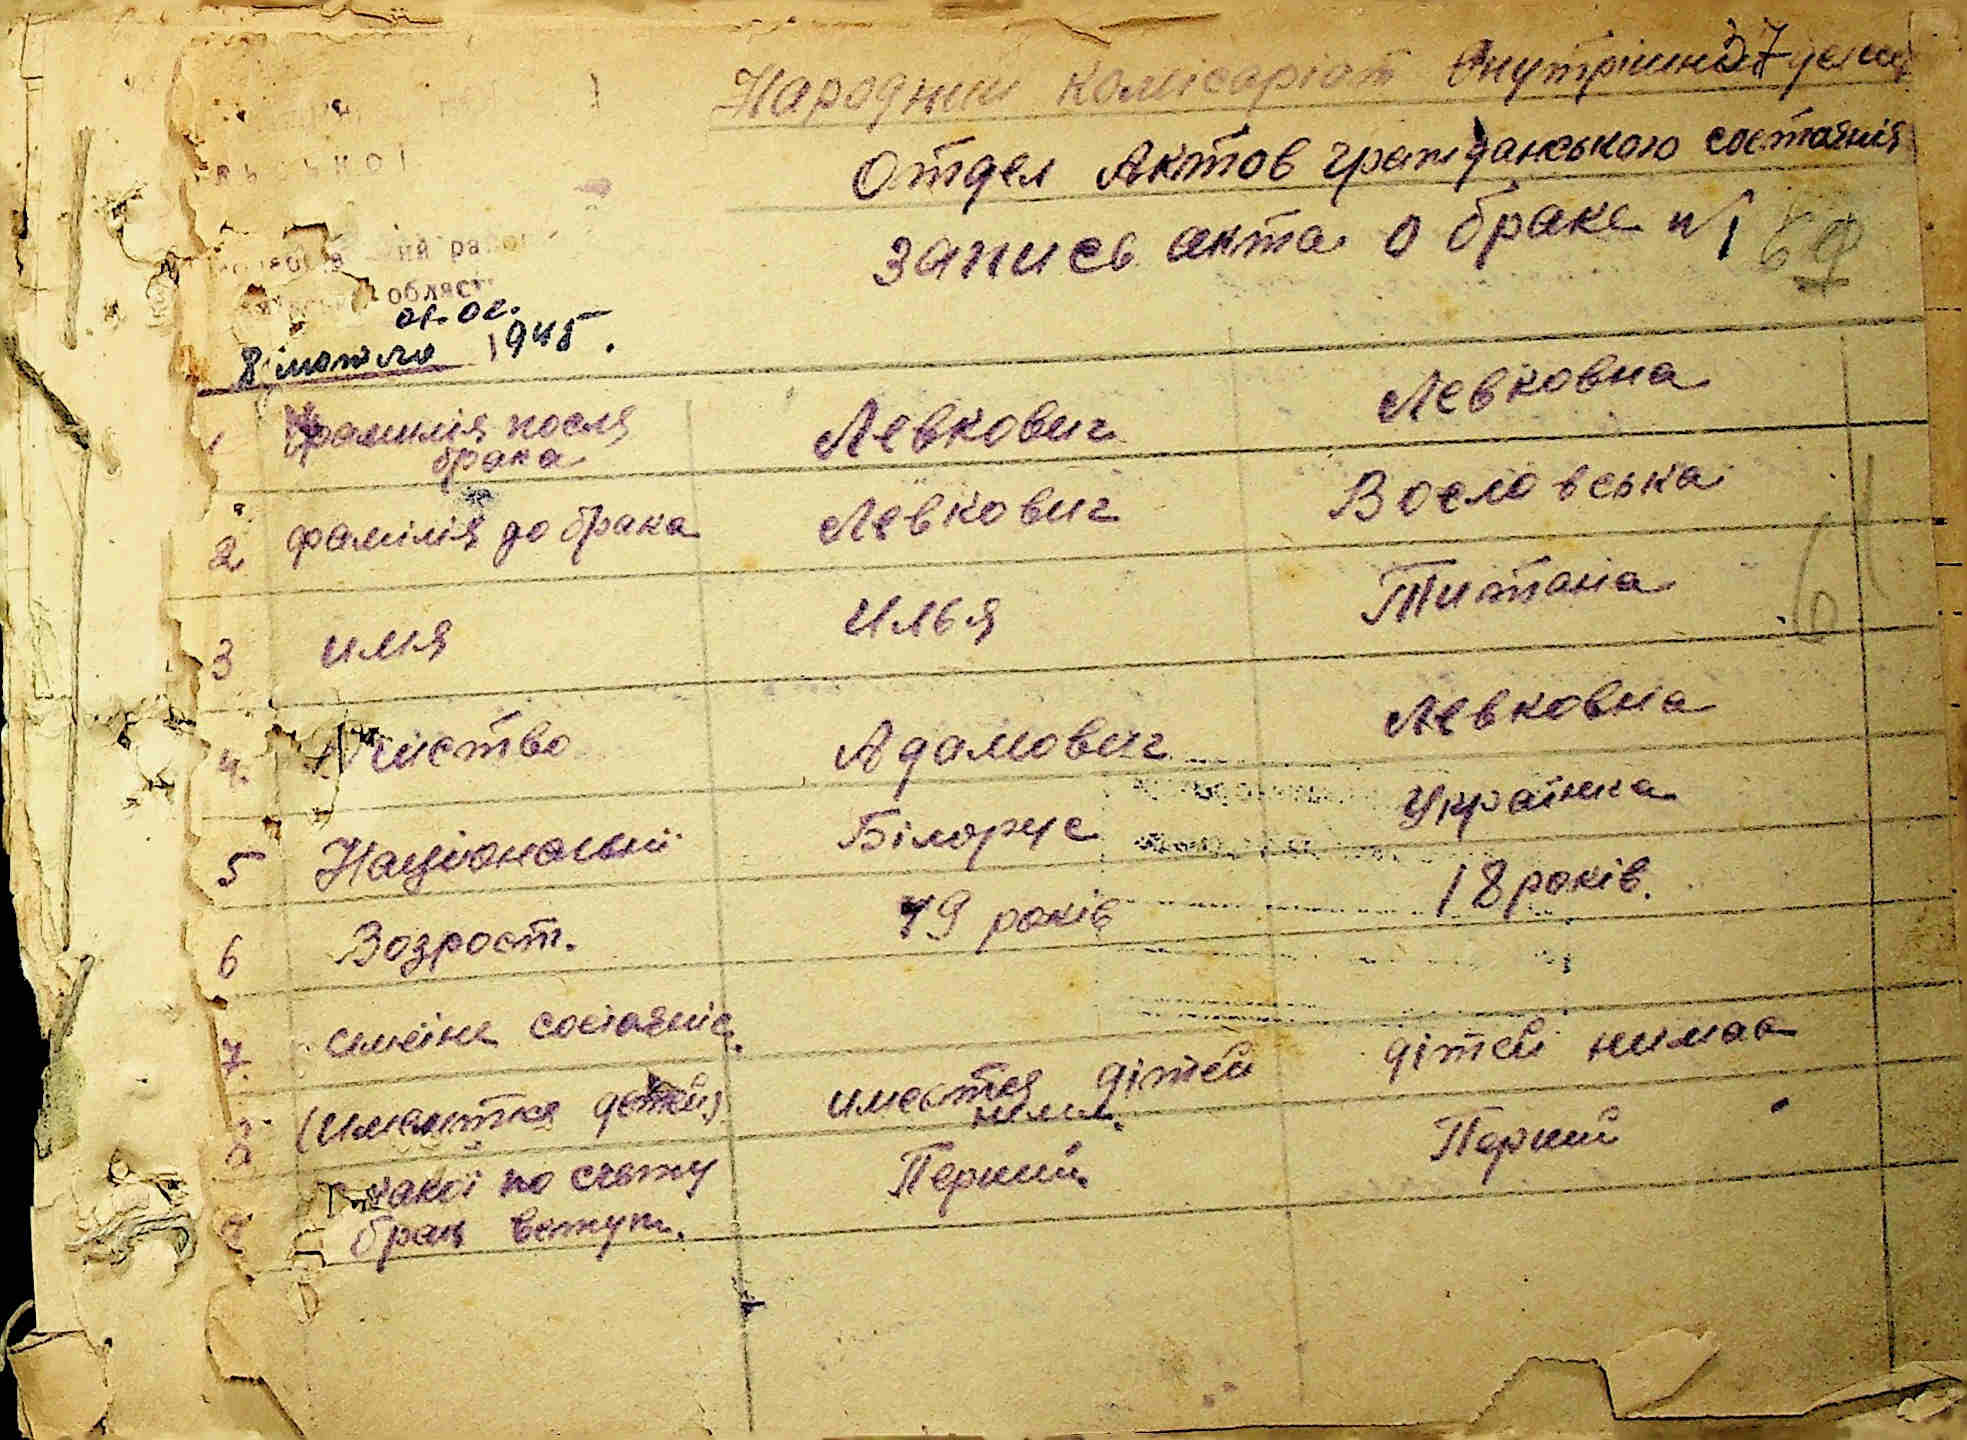 27
Народний комісаріат Внутрішних
Отдел Актов гражданського состаянія
Запись акта о браке №1 69
рай
област
01.02.
8 лютого 1945.
1 Фамилія посля брака Левкович Левковна
2 фамілія до брака Левкович Вословська
3 имя Илья Титана
4. Левковна
Адамович
5 Національні Білорус Українка
6 Возрост. 19 років 18 років.
7. симейне состаяніє.
8 (имеются детей) имеются дітей нима. дітей нимаа
9 какої по счету брак вступ. Перший Перший